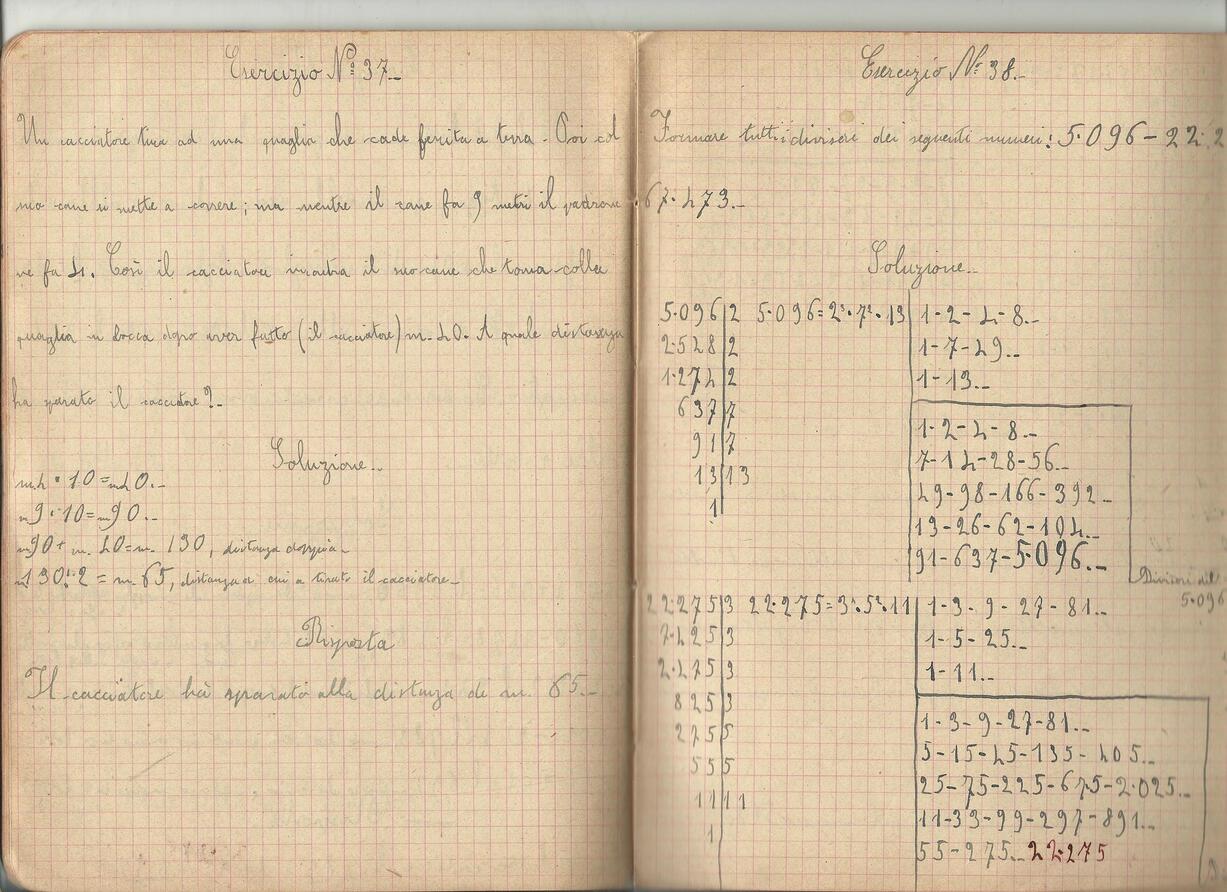 Esercizio Nº 37.-
Un cacciatore tira ad una quaglia che cade ferita a terra. Poi col
suo cane si mette a correre; ma mentre il cane fa 9 metri il padrone
ne fa 4. Così il cacciatore incontra il suo cane che torna colla
quaglia in bocca dopo aver fatto (il cacciatore) m. 40. A quale distanza
ha sparato il cacciatore?-
Soluzione..
m. 4 · 10 = m 40.-
m 9 · 10 = m 90.-
m 90 + m. 40 = m. 130, distanza doppia-
m 130 : 2 = m. 65, distanza a cui a tirato il cacciatore-
Risposta
Il cacciatore ha sparato alla distanza di m. 65.-
Esercizio Nº 38.-
Formare tutti i divisori dei seguenti numeri: 5·096 - 22·2
67·473.-
Soluzione..
5·096 | 2 5·096 = 2³·7²·13 | 1-2-4-8..
2·548 | 2 | 1-7-49..
1·274 | 2 | 1-13..
637 | 7
91 | 7 | 1-2-4-8..
13 | 13 | 7-14-28-56..
1 | 49-98-166-392..
13-26-62-104..
91-637-5·096..
Divisori del
5·096
22·275 | 3 22·275 = 3⁴·5²·11 | 1-3-9-27-81..
7·425 | 3 | 1-5-25..
2·475 | 3 | 1-11..
825 | 3
275 | 5 | 1-3-9-27-81..
55 | 5 | 5-15-45-135-405..
11 | 11 | 25-75-225-675-2·025..
1 | 11-33-99-297-891..
55-275.. 22·275